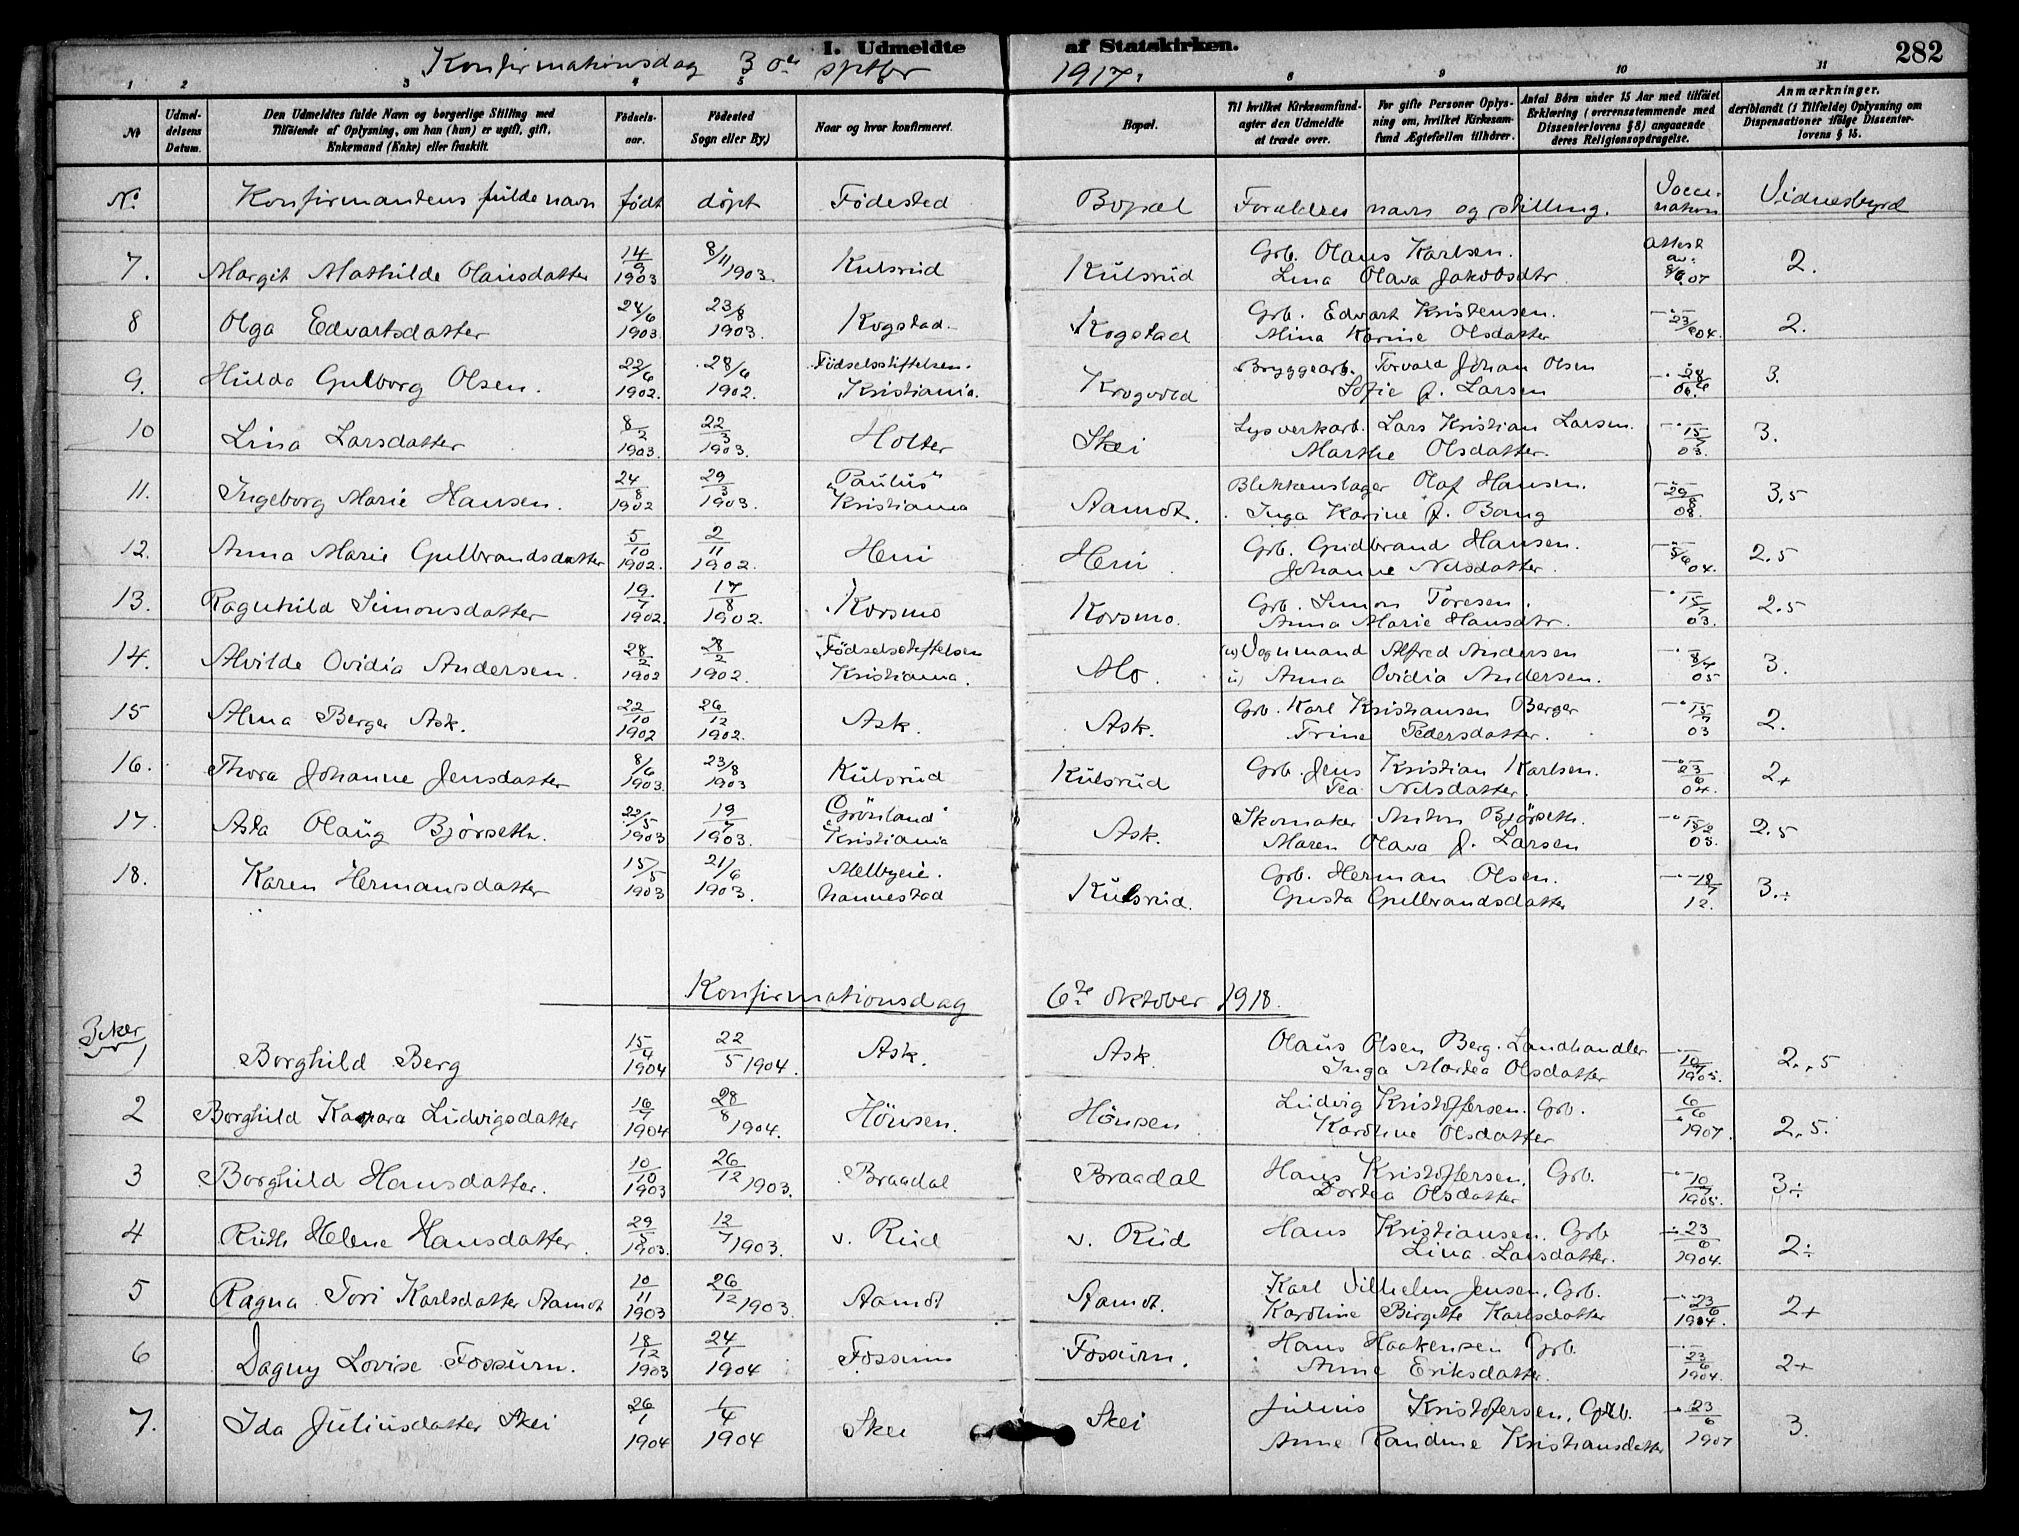 I. Udmeldte af Statskirken. 282
Konfirmationsdag 3die sptbr 1917.
1 2 3 4 5 6 8 9 10 11
No Udmeldelsens Datum. Den Udmeldtes fulde Navn og borgerlige Stilling med Tilføiende af Oplysning, om han (hun) er ugift, gift, Enkemand (Enke) eller fraskilt. Fødselsaar. Fødested Sogn eller By) Naar og hvor konfirmeret. Bopæl. Til hvilket Kirkesamfund agter den Udmeldte at træde over. For gifte Personer Oplysning om, hvilket Kirkesamfund Ægtefællen tilhører. Antal Børn under 15 Aar med tilføiet Erklæring (overensstemmende med Dissenterlovens § 8) angaaende deres Religionsopdragelse. Anmærkninger. deriblandt (i Tilfælde) Oplysning om Dispensationer ifølge Dissenterlovens § 15.
No Konfirmantens fulde navn født døpt Fødested Bopæl Forældres navn og stilling. Vaccination Vidnesbyrd
7. Margit Mathilde Olausdatter 14/9 1903 8/11 1903. Kulsrud Kulsrud Grb. Olaus Karlsen. Lina Olava Jakobsdtr attest av: 8/6 07 2.
8 Olga Edvartsdatter 24/6 1903. 23/8 1903. Kogstad Kogstad Grb. Edvart Kristensen. Mina Karine Olsdatter 23/6 04. 2.
9. Hulda Gulborg Olsen. 22/6 1902. 28/6 1902. Fødselsstiftelsen. Kristiania. Krogvold Bryggearb. Torvald Johan Olsen Sofie f. Larsen 28/6 3.
10 Lina Larsdatter 8/2 1903. 22/3 1903. Holter Skei Lysverkarb. Lars Kristian Larsen. Marthe Olsdatter. 15/7 03. 3.
11. Ingeborg Marie Hansen. 24/8 1902 29/3 1903. "Paulus" Kristiania Aamot. Blikkenslager Olaf Hansen. Inga Karine f. Bang 29/8 08. 3.5
12. Anna Marie Gulbrandsdatter 5/10 1902. 2/11 1902. Heni Heni. Grb. Gudbrand Hansen. Johanne Nilsdatter. 5/6 04. 2.5
13. Ragnhild Simonsdatter 19/7 1902. 17/8 1902. Korsmo Korsmo. Grb. Simon Toresen. Anna Marie Hansdtr. 15/7 03. 2.5
14. Alvilde Ovidia Andersen. 28/2 1902 28/2 1902. Fødselsstiftelsen Kristiania. Mo. Vognmand Alfred Andersen Anna Ovidia Andersen. 8/4 05 3.
15 Alma Berger Ask. 22/10 1902 26/12 1902. Ask. Ask. Grb. Karl Kristiansen Berger Trine Pedersdatter. 15/7 03 2.
16. Thora Johanne Jensdatter 8/6 1903. 23/8 1903 Kulsrud Kulsrud Grb. Jens Kristian Karlsen. Tea Nilsdatter. 23/6 04. 2+
17. Asta Olaug Bjørseth. 22/5 1903 19/7 1903. "Grønland" Kristiania Ask. Skomaker Anton Bjørseth. Maren Olava f. Larsen 2.5
18. Karen Hermansdatter 15/5 1903 21/6 1903. Melbyeie. Nannestad Kulsrud. Grb. Herman Olsen. Gusta Gulbrandsdatter 18/7 12. 3.÷
Konfirmationsdag 6te oktober 1918.
Piker
1 Borghild Berg 15/4 1904 22/5 1904. Ask. Ask. Olaus Olsen Berg. Landhandler Inga Martea Olsdatter 10/7 1905. 2.,5
2 Borghild Kaspara Ludvigsdatter 16/7 1904 28/8 1904. Hönsen. Hönsen Ludvig Kristoffersen. Grb. Karoline Olsdatter 6/6 1907. 2.5.
3 Borghild Hansdatter. 10/10 1903 26/12 1903. Braadal Braadal Hans Kristoffersen. Grb. Dortea Olsdatter 10/7 1905. 3÷
4 Ruth Helene Hansdatter. 29/5 1903. 12/7 1903. v. Rud v. Rud Hans Kristiansen. Grb Lina Larsdatter. 23/6 1904. 2÷
5 Ragna Tori Karlsdatter Aamot 10/11 1903 26/12 1903. Aamot Aamot. Karl Vilhelm Jensen. Grb. Karoline Birgitte Karlsdatter 23/6 1904. 2+
6 Dagny Lovise Fossum. 18/12 1903 24/1 1904 Fossum Fossum. Hans Haakensen Grb. Anne Eriksdatter. 23/6 1904. 2+
7. Ida Juliusdatter Skei 26/1 1904 1/4 1904 Skei Skei Julius Kristoffersen, Grb. Anne Randine Kristiansdatter 23/6 1907 3.